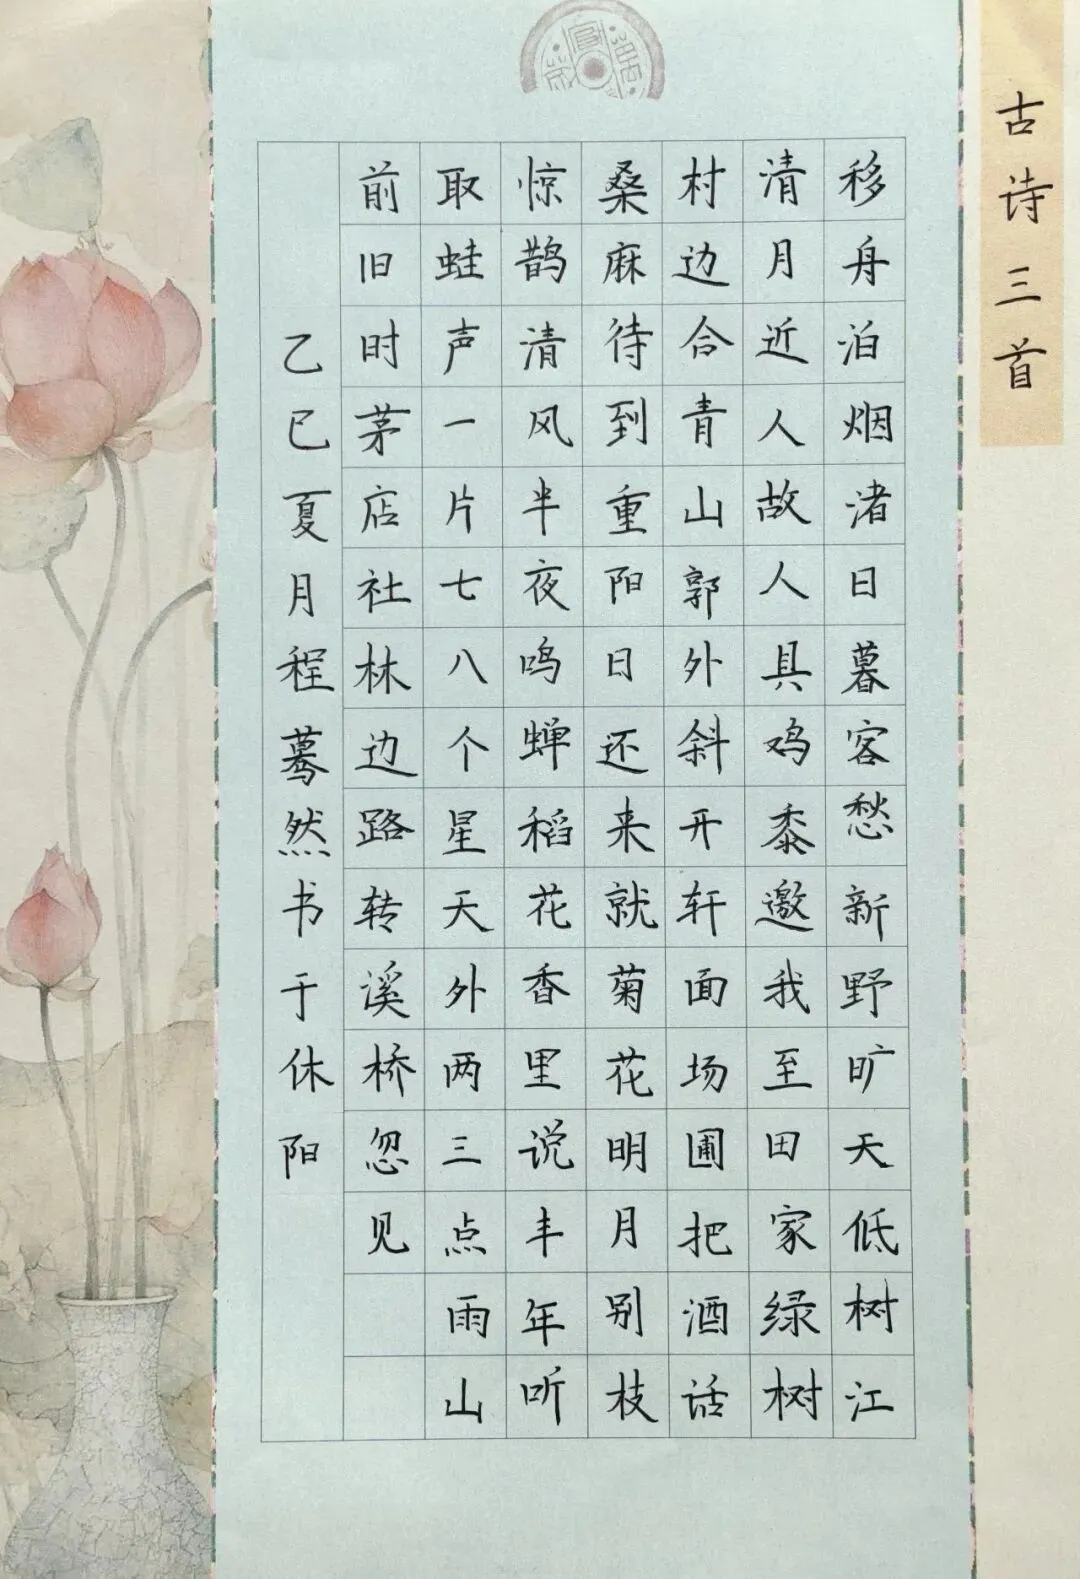 古诗三首
移舟泊烟渚日暮客愁新野旷天低树江
清月近人故人具鸡黍邀我至田家绿树
村边合青山郭外斜开轩面场圃把酒话
桑麻待到重阳日还来就菊花明月别枝
惊鹊清风半夜鸣蝉稻花香里说丰年听
取蛙声一片七八个星天外两三点雨山
前旧时茅店社林边路转溪桥忽见
乙巳夏月程蓦然书于休阳